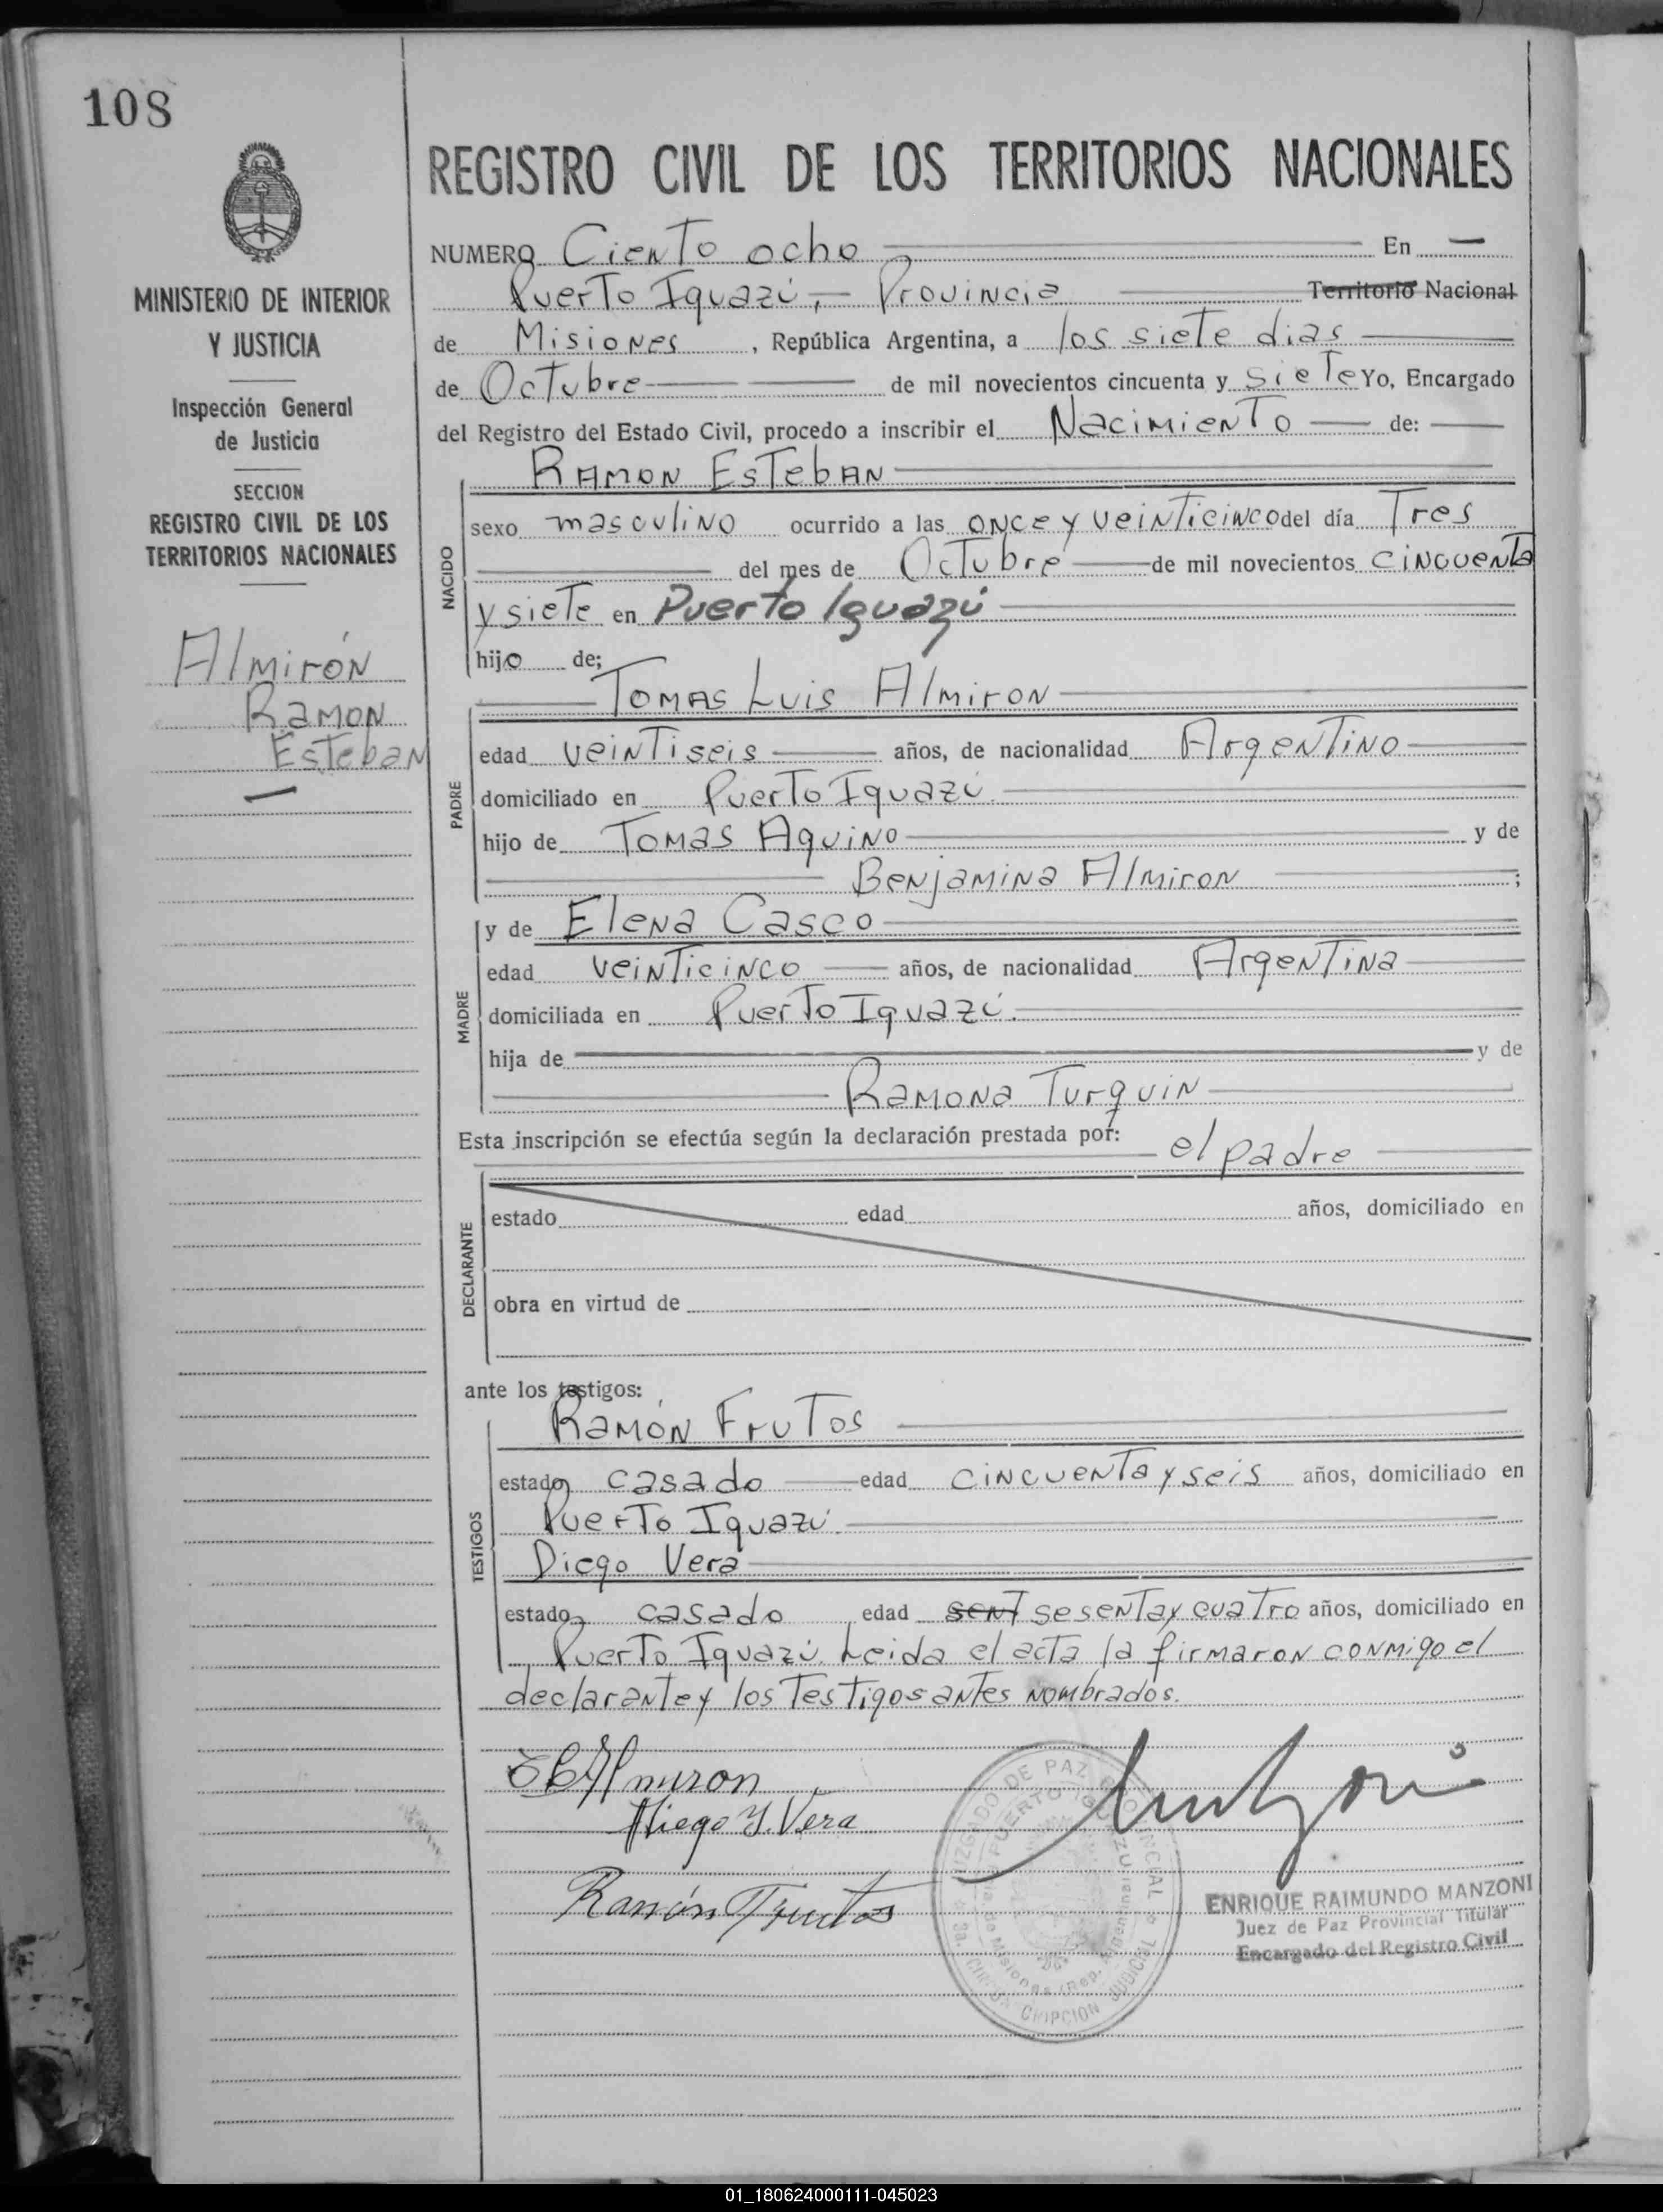 108
REGISTRO CIVIL DE LOS TERRITORIOS NACIONALES
MINISTERIO DE INTERIOR
Y JUSTICIA
Inspección General
de Justicia
SECCION
REGISTRO CIVIL DE LOS
TERRITORIOS NACIONALES
Almirón
Ramon
Esteban
NUMERO Ciento ocho En
Puerto Iguazú, Provincia Territorio Nacional
de Misiones, República Argentina, a los siete dias
de Octubre de mil novecientos cincuenta y siete Yo, Encargado
del Registro del Estado Civil, procedo a inscribir el Nacimiento de:
NACIDO
Ramon Esteban
sexo masculino ocurrido a las once y veinticinco del día Tres
del mes de Octubre de mil novecientos cincuenta
y siete en Puerto Iguazú
hijo de;
PADRE
Tomas Luis Almiron
edad veintiseis años, de nacionalidad Argentino
domiciliado en Puerto Iguazú.
hijo de Tomas Aquino y de
Benjamina Almiron ;
MADRE
y de Elena Casco
edad veinticinco años, de nacionalidad Argentina
domiciliada en Puerto Iguazú.
hija de y de
Ramona Turquin
Esta inscripción se efectúa según la declaración prestada por: el padre
DECLARANTE
estado edad años, domiciliado en
obra en virtud de
ante los testigos:
TESTIGOS
Ramón Frutos
estado casado edad cincuenta y seis años, domiciliado en
Puerto Iguazú.
Diego Vera
estado casado edad sent sesenta y cuatro años, domiciliado en
Puerto Iguazú. Leida el acta la firmaron conmigo el
declarante y los Testigos antes nombrados.
Almiron
Diego Y. Vera
Ramón Frutos
JUZGADO DE PAZ PROVINCIAL
PUERTO IGUAZU
3a. CIRCUNSCRIPCION JUDICIAL
ENRIQUE RAIMUNDO MANZONI
Juez de Paz Provincial Titular
Encargado del Registro Civil
01_180624000111-045023